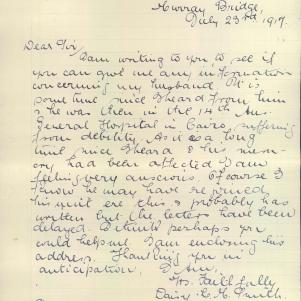 Murray Bridge,
July 23rd 1917.
Dear Sir
I am writing to you to see if
you can give me any information
concerning my husband. It is
some time since I heard from him
& he was then in the 14th Au.
General Hospital in Cairo suffering
from debility. As it is a long
time since I heard & his mem-
ory had been affected I am
feeling very anxious. Of course I
know he may have rejoined
his unit ere this & probably has
written but the letters have been
delayed. I think perhaps you
could help me. I am enclosing his
address. Thanking you in
anticipation. I Am,
Yrs. Faithfully
Daisy E. M. Smith.